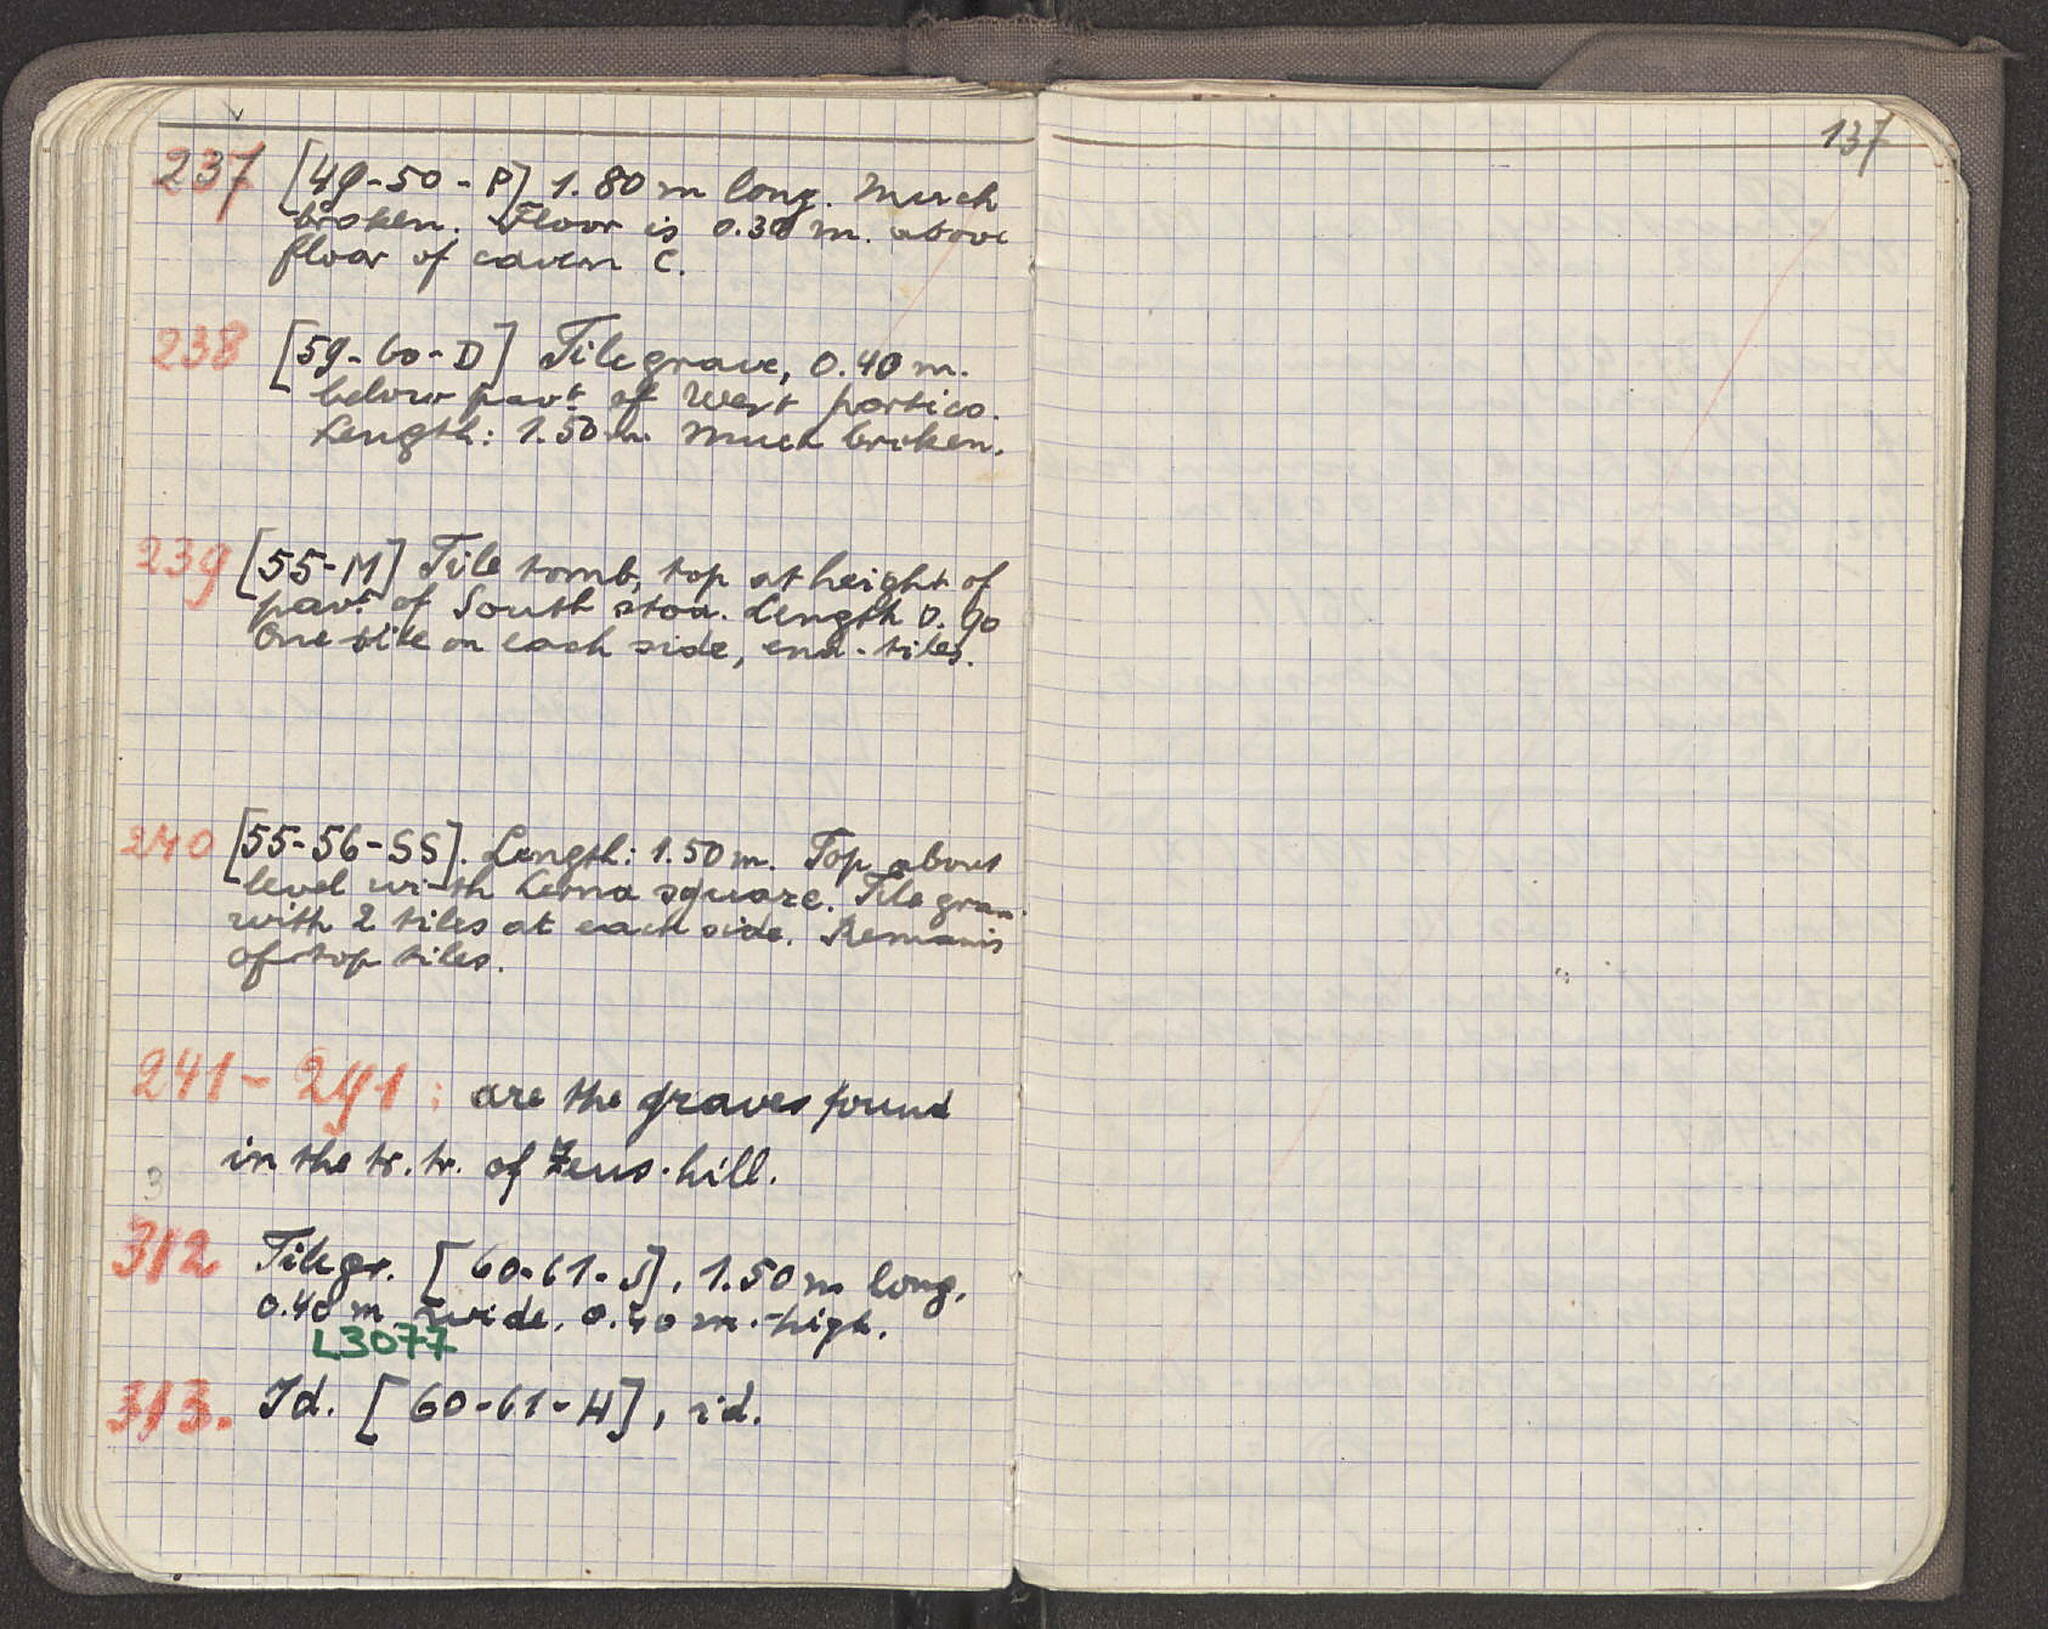 237 [49-50-P] 1.80 m long. Much
broken. Floor is 0.30 m. above
floor of cavern C.
238 [59-60-D] Tile grave, 0.40 m.
below pavt of West portico.
Length: 1.50 m. Much broken.
239 [55-M] Tile tomb, top at height of
pavt of South stoa. Length 0.90
One tile on each side, end-tiles.
240 [55-56-SS]. Length: 1.50 m. Top about
level with Lerna square. Tile grave
with 2 tiles at each side. Remains
of top tiles.
241-291: are the graves found
in the tr. tr. of Zeus-hill.
3
312 Tile gr. [60-61-J], 1.50 m long,
0.40 m wide, 0.40 m. high.
L3077
313. Id. [60-61-H], id.
137